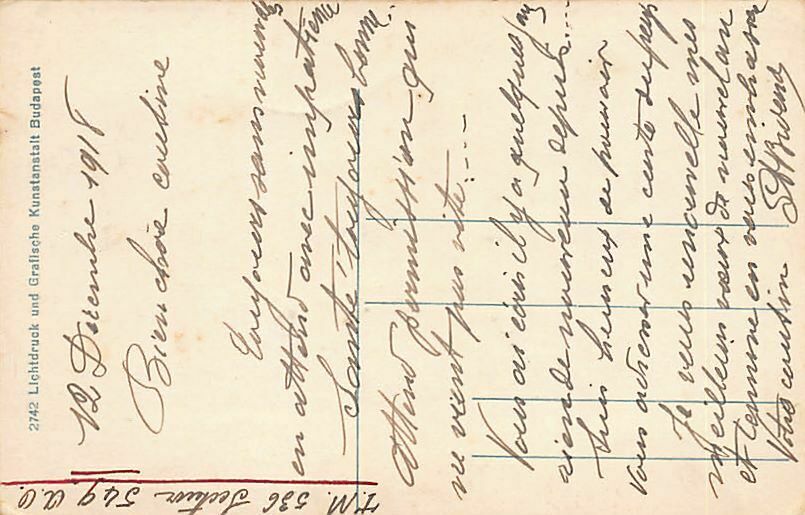 2742 Lichtdruck und Grafische Kunstanstalt Budapest
12 Décembre 1918
Bien chère cousine
Toujours sans nouvelle
en attend avec impatience
Santé toujours bonne..
attend permission qui
ne vient pas vite....
Vous ai écris il y a quelques
rien de nouveau depuis....
Suis heureux de pouvoir
vous adresser une carte du pays
Je vous renouvelle mes
meilleurs vœux de nouvel an
et termine en vous embrassant
Votre cousin
T.M. 536 Secteur 549 A.O.